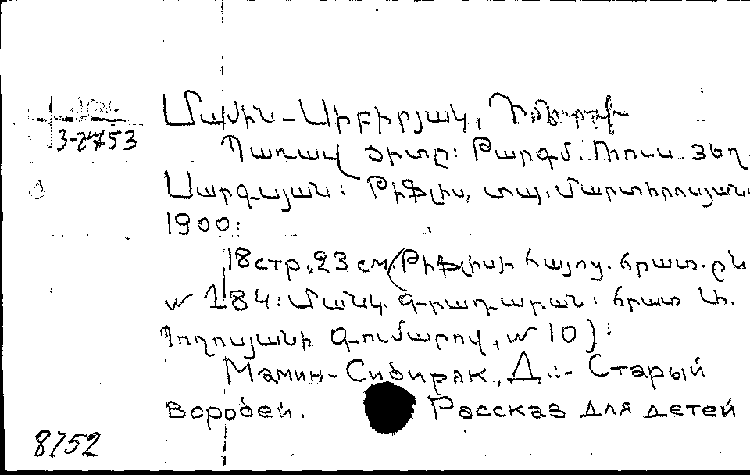 3-2753
Մամին-Սիբիրյակ,
Պառավ ծիտը: Թարգմ. Ռուս. Յեղ.
Սարգսյան: Թիֆլիս, տպ. Մարտիրոսյանի
1900:
18стр., 23 см (Թիֆլիսի հայոց. հրատ. ըն
№ 184: Մանկ. գրադարան: հրատ
գումարով, № 10):
Мамин-Сибиряк, Д.:- Старый
воробей. Рассказ для детей
8752